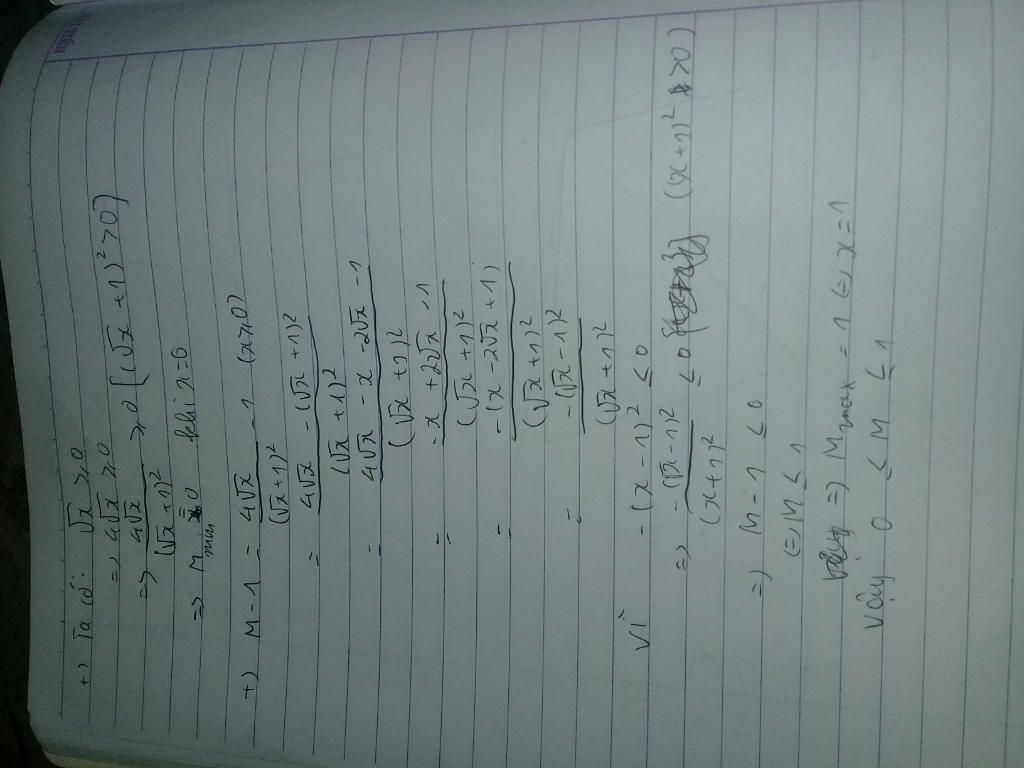 +) Ta có: √x ≥ 0
=> 4√x ≥ 0
=> 4√x / (√x+1)² ≥ 0 [(√x+1)² > 0)
=> M min = 0 khi x = 0
+) M - 1 = 4√x / (√x+1)² - 1 (x ≥ 0)
= 4√x - (√x+1)² / (√x+1)²
= 4√x - x - 2√x - 1 / (√x+1)²
= -x + 2√x - 1 / (√x+1)²
= -(x - 2√x + 1) / (√x+1)²
= -(√x - 1)² / (√x+1)²
Vì -(x - 1)² ≤ 0
=> -(√x-1)² / (x+1)² ≤ 0 (x+1)² > 0)
=> M - 1 ≤ 0
(=) M ≤ 1
=> M max = 1 (=) x = 1
Vậy 0 ≤ M ≤ 1